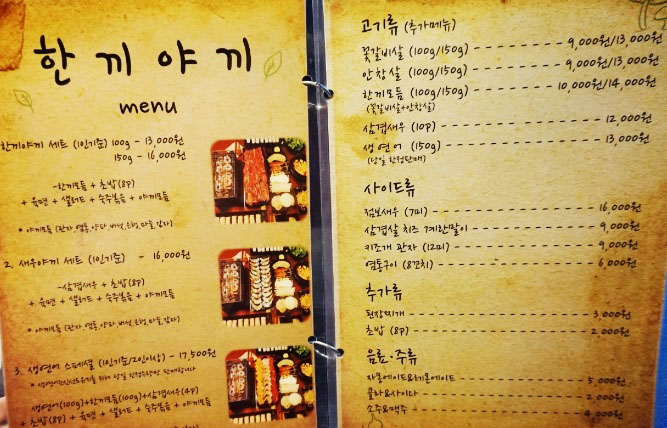 한 끼 야 끼
menu
한끼야끼 세트 (1인기준) 100g - 13,000원
150g - 16,000원
-한끼모듬 + 초밥(8p)
+ 육면 + 샐러드 + 숙주볶음 + 야끼모듬
2. 새우야끼 세트 (1인기준) - 16,000원
-삼겹새우 + 초밥(8p)
+ 육면 + 샐러드 + 숙주볶음 + 야끼모듬
3. 생연어 스페셜 (1인기준/2인이상) - 17,500원
생연어(100g)+한끼모듬(100g)+삼겹새우(4p)
+ 초밥(8p) + 육면 + 샐러드 + 숙주볶음 + 야끼모듬
고기류 (추가메뉴)
꽃갈비살 (100g/150g) 9,000원/13,000원
안창살 (100g/150g) 9,000원/13,000원
한끼모듬 (100g/150g) 10,000원/14,000원
(꽃갈비살+안창살)
삼겹새우 (10p) 12,000원
생연어 (150g) 13,000원
(당일 한정판매)
사이드류
점보새우 (7미) 16,000원
삼겹살 치즈 계란말이 9,000원
키조개 관자 (12미) 9,000원
염통구이 (8꼬치) 6,000원
추가류
된장찌개 3,000원
초밥 (8p) 2,000원
음료·주류
자몽에이드&레몬에이드 5,000원
콜라&사이다 2,000원
소주&맥주 4,000원